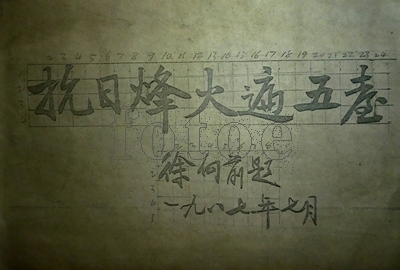 2 3 4 5 6 7 8 9 10 11 12 13 14 15 16 17 18 19 20 21 22 23 24
抗日烽火遍五臺
fotoe
徐向前题
一九八七年七月